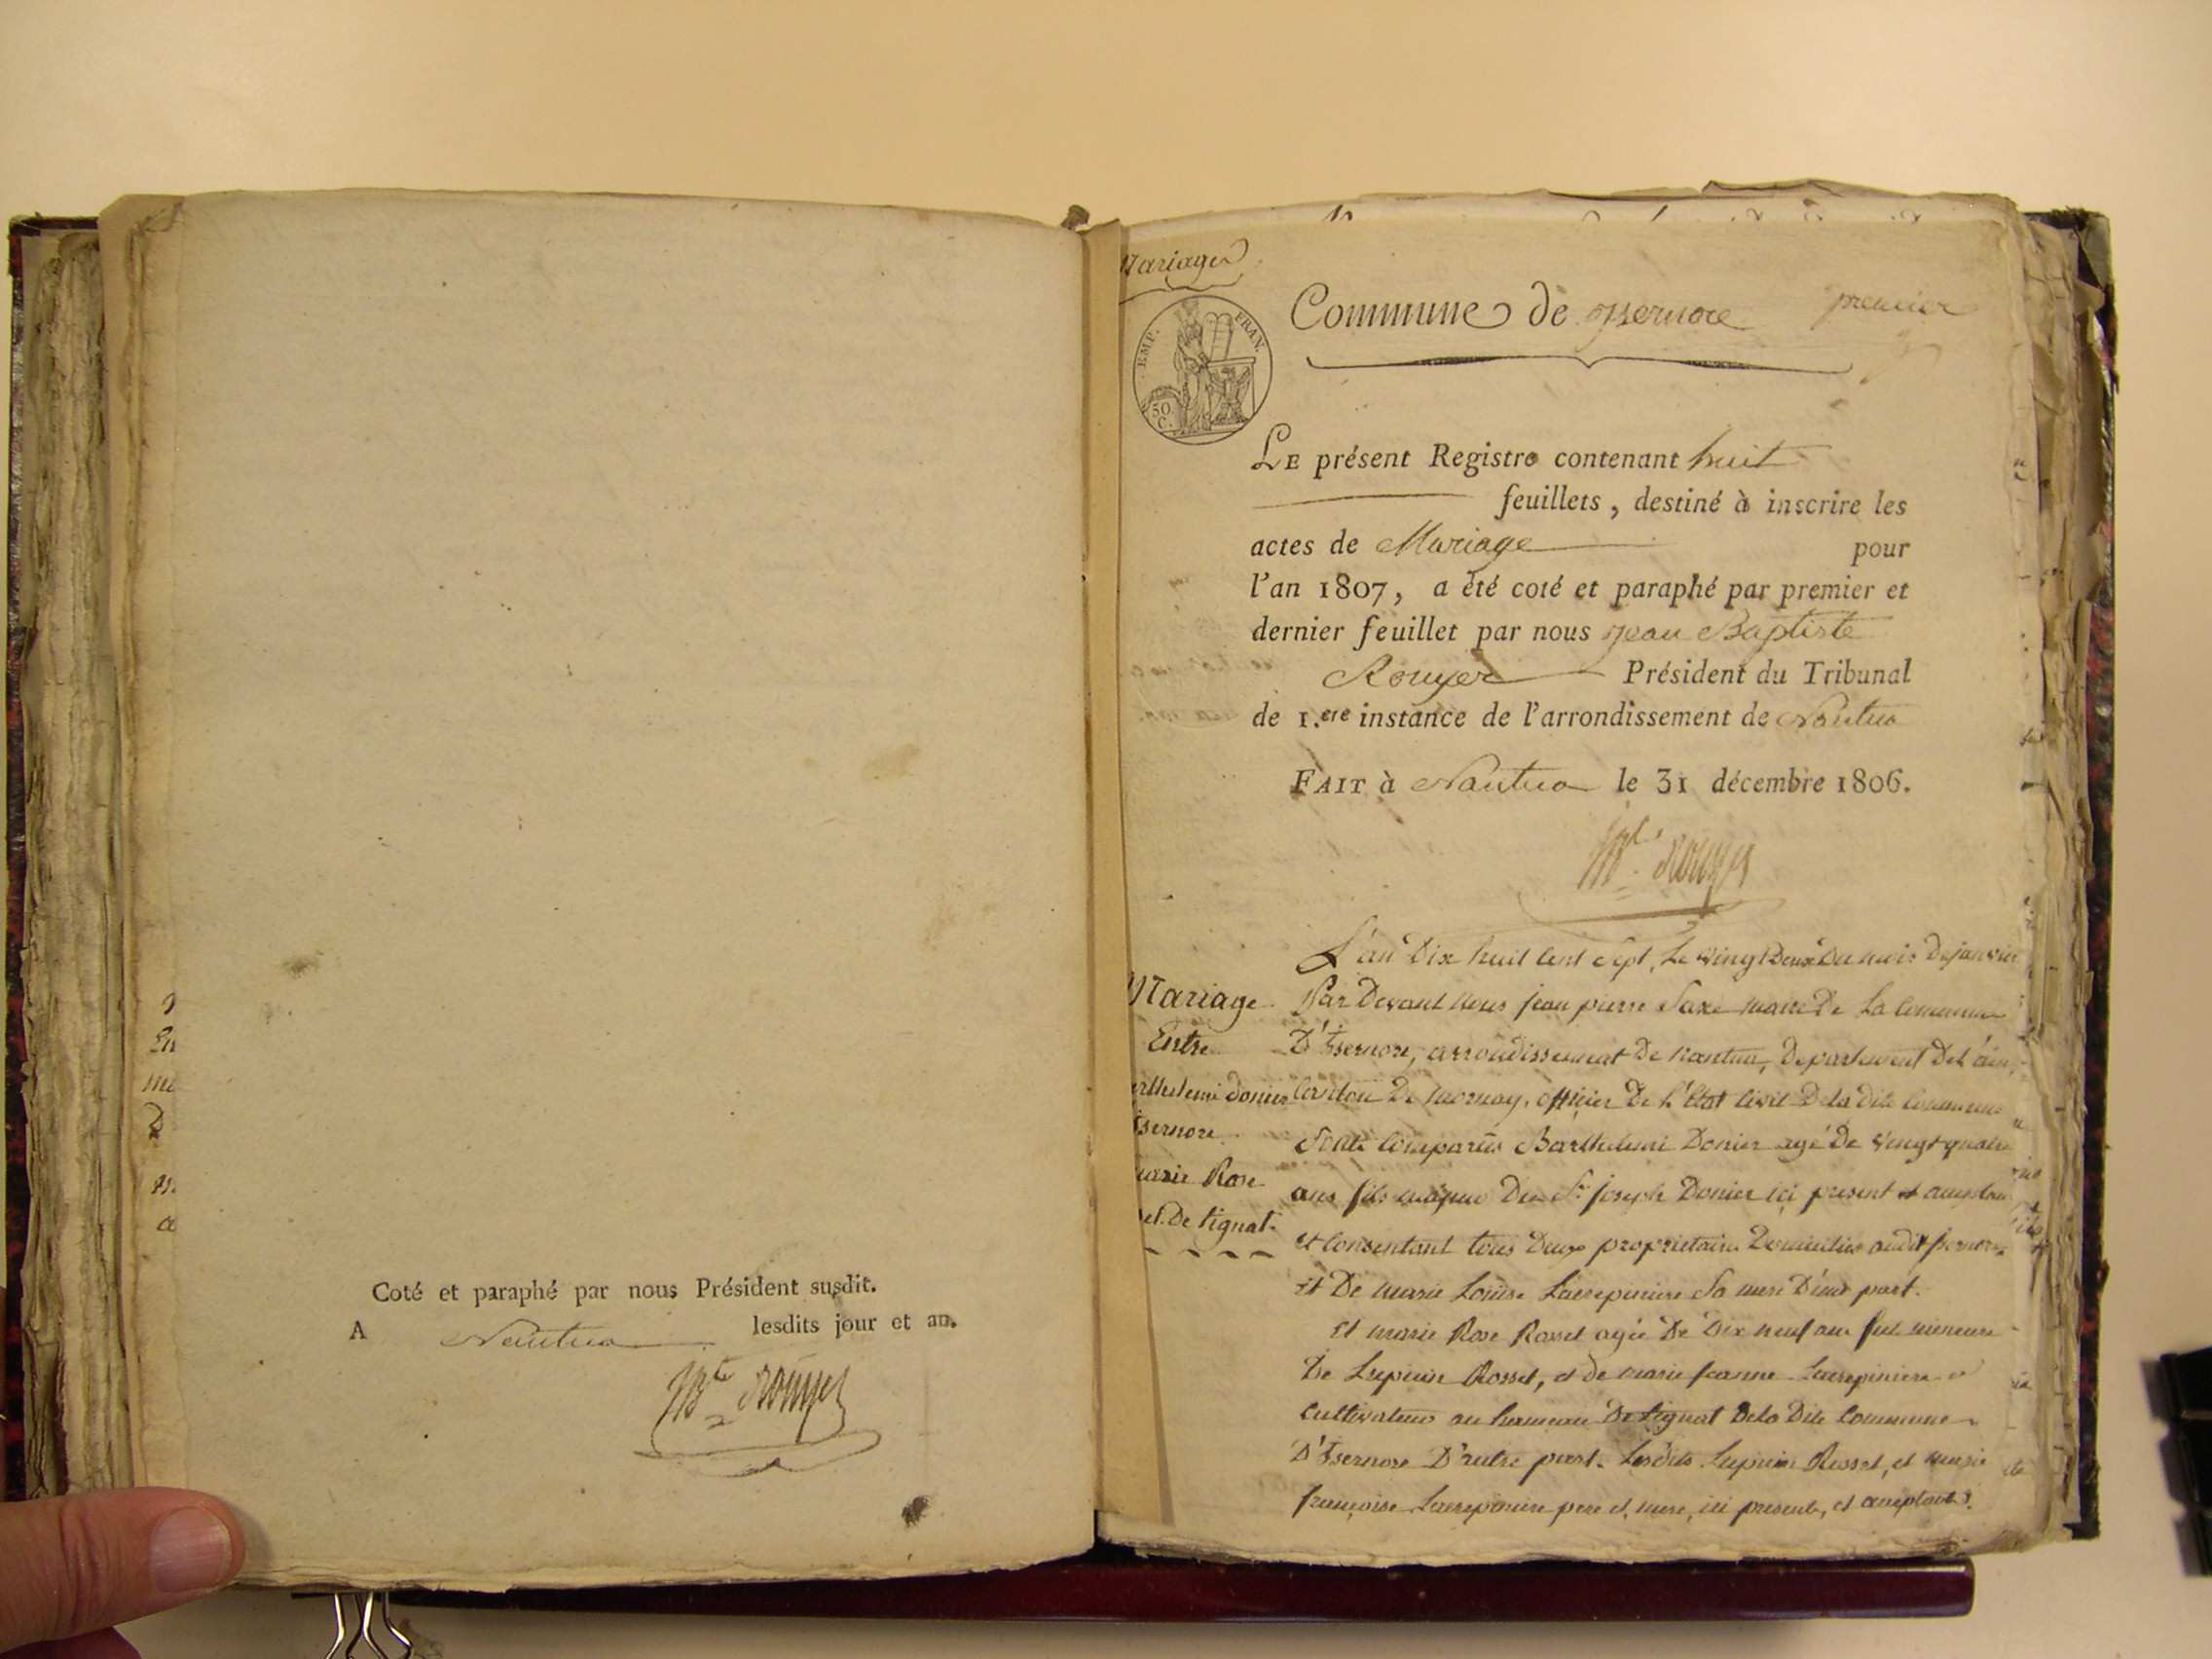 Coté et paraphé par nous Président susdit.
A Nantua lesdits jour et an.
JBte Rouyer
Mariages
Commune de Ysernore premier
EMP. FRAN.
50 C.
LE présent Registre contenant huit
feuillets, destiné à inscrire les
actes de Mariage pour
l'an 1807, a été coté et paraphé par premier et
dernier feuillet par nous jean Baptiste
Rouyer Président du Tribunal
de 1.ere instance de l'arrondissement de Nantua
FAIT à Nantua le 31 décembre 1806.
JBte Rouyer
Mariage
Entre
arthelemi Donier
isernore
marie Rose
set De tignat.
L'an Dix huit Cent Sept, Le vingt Deux Du mois De janvier
Par Devant Nous jean pierre Saxe maire De La Commune
D'Isernore, arrondissement De nantua, Departement De L'ain,
Canton De mornay, officier De L'Etat Civil De la dite Commune
Sont Comparus Barthelemi Donier agé De vingt quatre
ans fils majeur Du Sr joseph Donier ici present et acceptant
et Consentant tous Deux proprietaires Domicilies audit isernore
et De marie Louise Lacrepiniere Sa mere D'une part.
Et marie Rose Rosset agée De Dix neuf ans fille mineure
De Lupicin Rosset, et de marie Lacrepiniere
cultivateurs au hameau De tignat De la Dite Commune
D'Isernore D'autre part. Lesdits Lupicin Rosset, et marie
françoise Lacrepiniere pere et mere, ici presents, et acceptants.